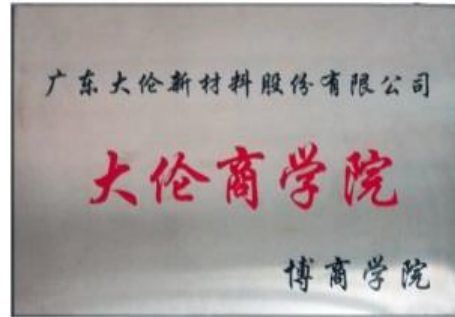 广东大伦新材料股份有限公司
大伦商学院
博商学院